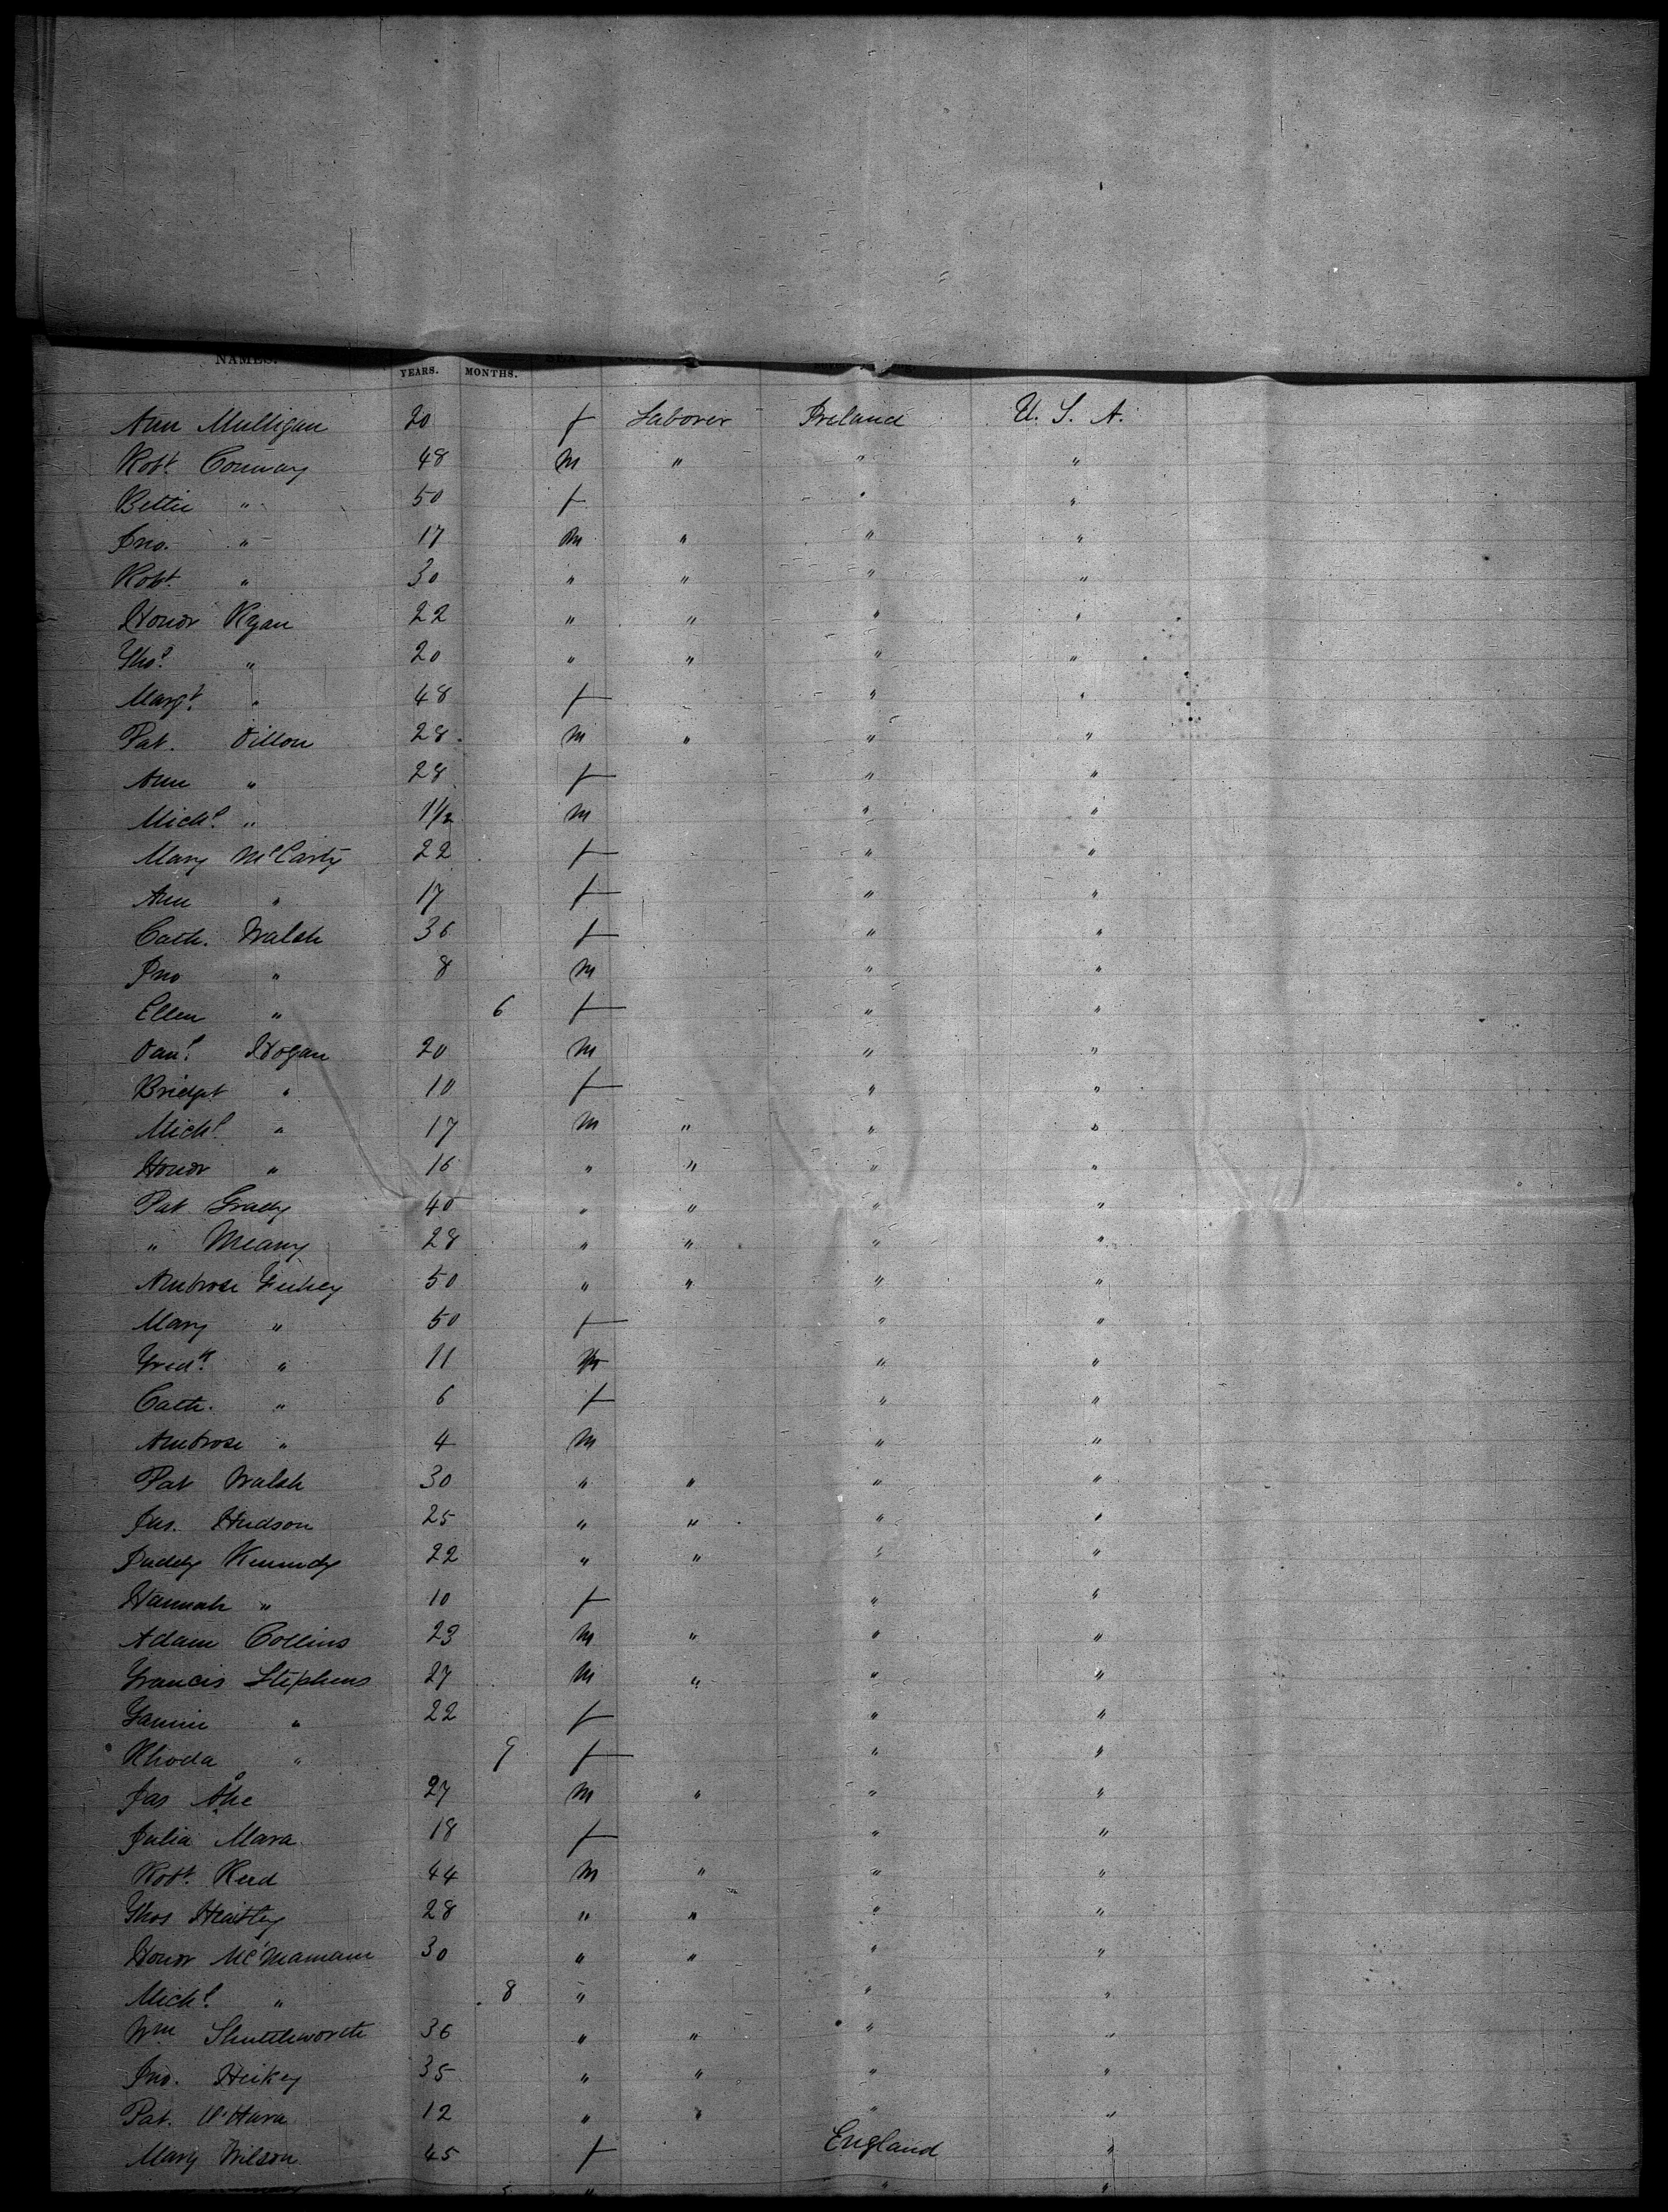 NAMES. YEARS. MONTHS.
Ann Mulligan 20 f Laborer Ireland U. S. A.
Robt. Conway 48 m " " "
Bettie " 50 f " "
Jno. " 17 m " " "
Robt. " 30 " " " "
Honor Ryan 22 " " " "
Thos. " 20 " " " "
Margt. " 48 f " "
Pat. Dillon 28 m " " "
Ann " 28 f " "
Michl. " 1 1/2 m " "
Mary McCarty 22 f " "
Ann " 17 f " "
Cath. Walsh 36 f " "
Jno " 8 m " "
Ellen " 6 f " "
Danl. Hogan 20 m " "
Bridget " 10 f " "
Michl. " 17 m " " "
Honor " 16 " " " "
Pat Grady 40 " " " "
" Meany 28 " " " "
Ambrose 50 " " " "
Mary " 50 f " "
Fredk. " 11 m " "
Cath. " 6 f " "
Ambrose " 4 m " "
Pat Walsh 30 " " " "
Jas. Hudson 25 " " " "
Kennedy 22 " " " "
Hannah " 10 f " "
Adam Collins 23 m " " "
Francis Stephens 27 m " " "
Fannie " 22 f " "
Rhoda " 9 f " "
Jas 27 m " " "
Julia Mara 18 f " "
Robt. Reed 44 m " " "
Thos 28 " " " "
Honor McNamam 30 " " " "
Michl. " 8 " " "
Wm Shuttleworth 36 " " " "
Jno. Hickey 35 " " " "
Pat. O'Hara 12 " " " "
Mary Wilson 45 f England "